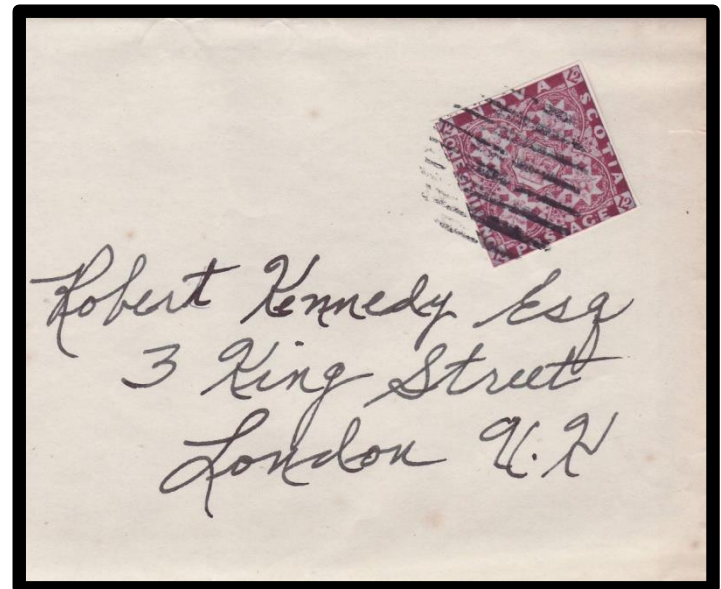 NOVA
SCOTIA
POSTAGE
12
12
12
Robert Kennedy Esq
3 King Street
London U.K